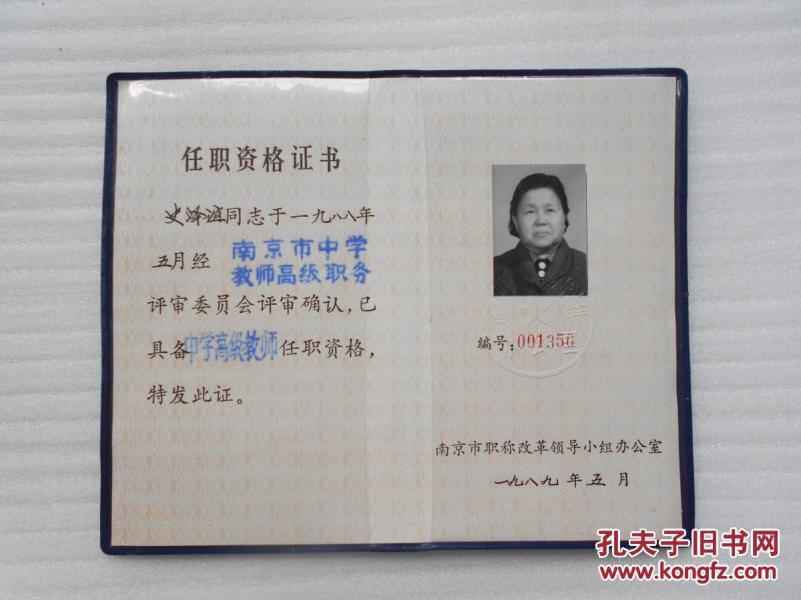 任职资格证书
史泽谊同志于一九八八年
五月经 南京市中学
教师高级职务
评审委员会评审确认,已
具备中学高级教师任职资格,
特发此证。
编号:001350
南京市职称改革领导小组办公室
一九八九年五月
孔夫子旧书网
www.kongfz.com